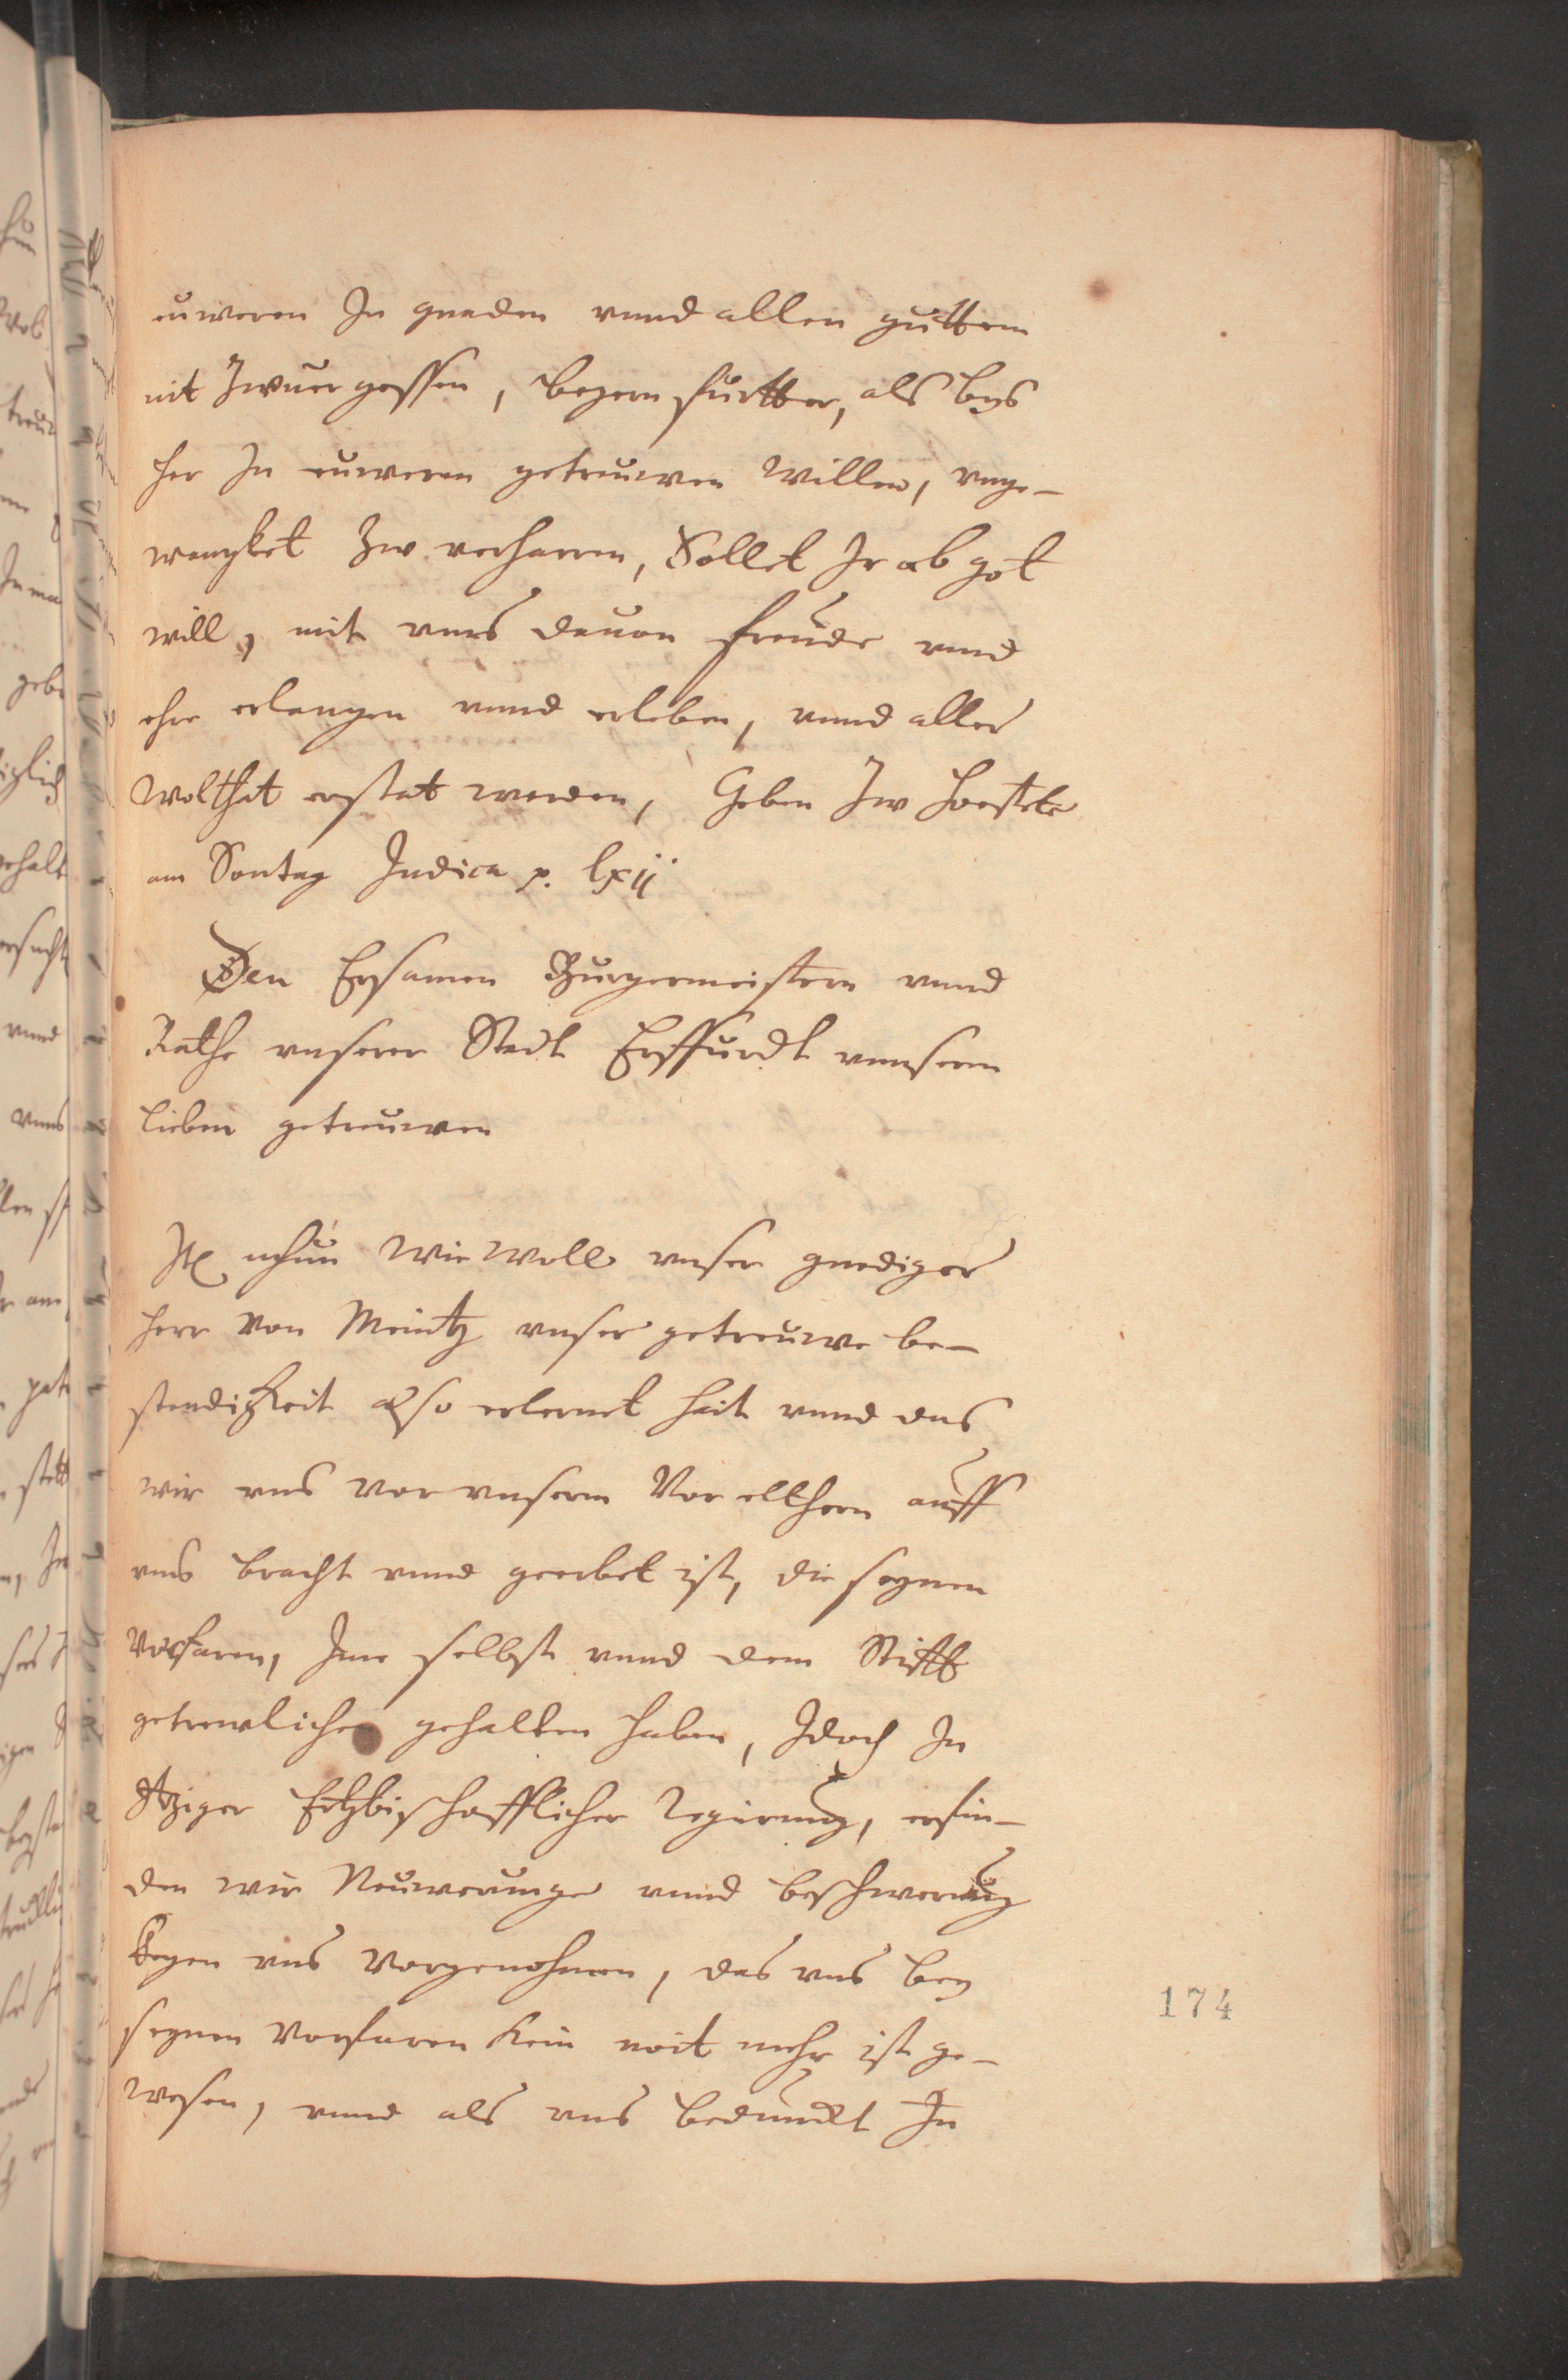 euweren In gnaden vnnd allen guttem
nit Zwuergessen, begern furtter, als bys
her In euweren getreuwen willen, vnge-
wengket Zw verharren, Sollet Ir ab got
will, mit vnns dauon freude vnnd
ehre erlangen vnnd erleben, vnnd aller
wolthat erstat werden, Geben Zw Hoeste
am Sontag Judica p. lxij
Den Ersamen Burgermeistern vnnd
Rathe vnserer Stadt Erffurdt vnnsern
lieben getreuwen
It nhun wie woll vnser gnediger
herr von Meintz vnser getreuwe be-
stendigkeit also erlernet hait vnnd das
wir vns vor vnsern Vor elthern auff
vns bracht vnnd geerbet ist, die seynen
Vorfaren, Ime selbst vnnd dem Stifft
getrewlichen gehalten haben, Idoch In
Itziger Ertzbischofflicher Regirung, erfin-
den wir Neuwerunge vnnd beschwerung
kegen vns vorgenohmen, das vns bey
seynen Vorfaren kein noit mehr ist ge-
wesen, vnnd als vns bedunckt In
174